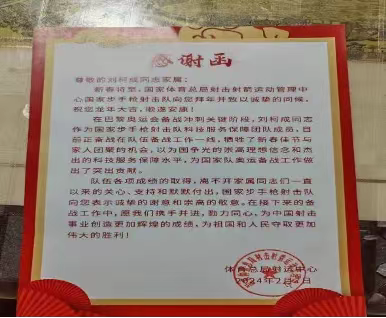 感谢函
尊敬的刘柯成同志家属:
新春将至,国家体育总局射击射箭运动管理中
心国家步手枪射击队向您拜年并致以诚挚的问候,
祝您龙年大吉,阖家安康!
在巴黎奥运会备战冲刺关键阶段,刘柯成同志
作为国家步手枪射击队科技服务保障团队成员,目
前正奋战在队伍备战工作一线,牺牲了新春佳节与
家人团聚的机会,以为国争光的崇高理想信念和杰
出的科技服务保障水平,为国家队奥运备战工作做
出了突出贡献。
队伍各项成绩的取得,离不开家属同志们一直
以来的关心、支持和默默付出,国家步手枪射击队
向您表示诚挚的谢意和崇高的敬意。在接下来的备
战工作中,愿我们携手并进,勠力同心,为中国射击
事业创造更加辉煌的成绩,为祖国和人民夺取更加
伟大的胜利!
体育总局射运中心
2024年2月